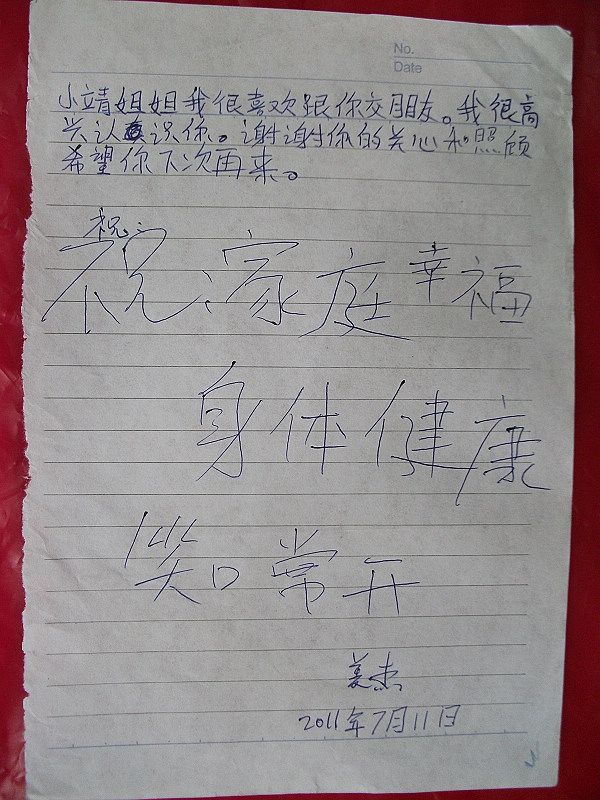 No.
Date
小靖姐姐我很喜欢跟你交朋友。我很高
兴认识你。谢谢你的关心和照顾
希望你下次再来。
祝:
祝:家庭幸福
身体健康
笑口常开
美杰
2011年7月11日